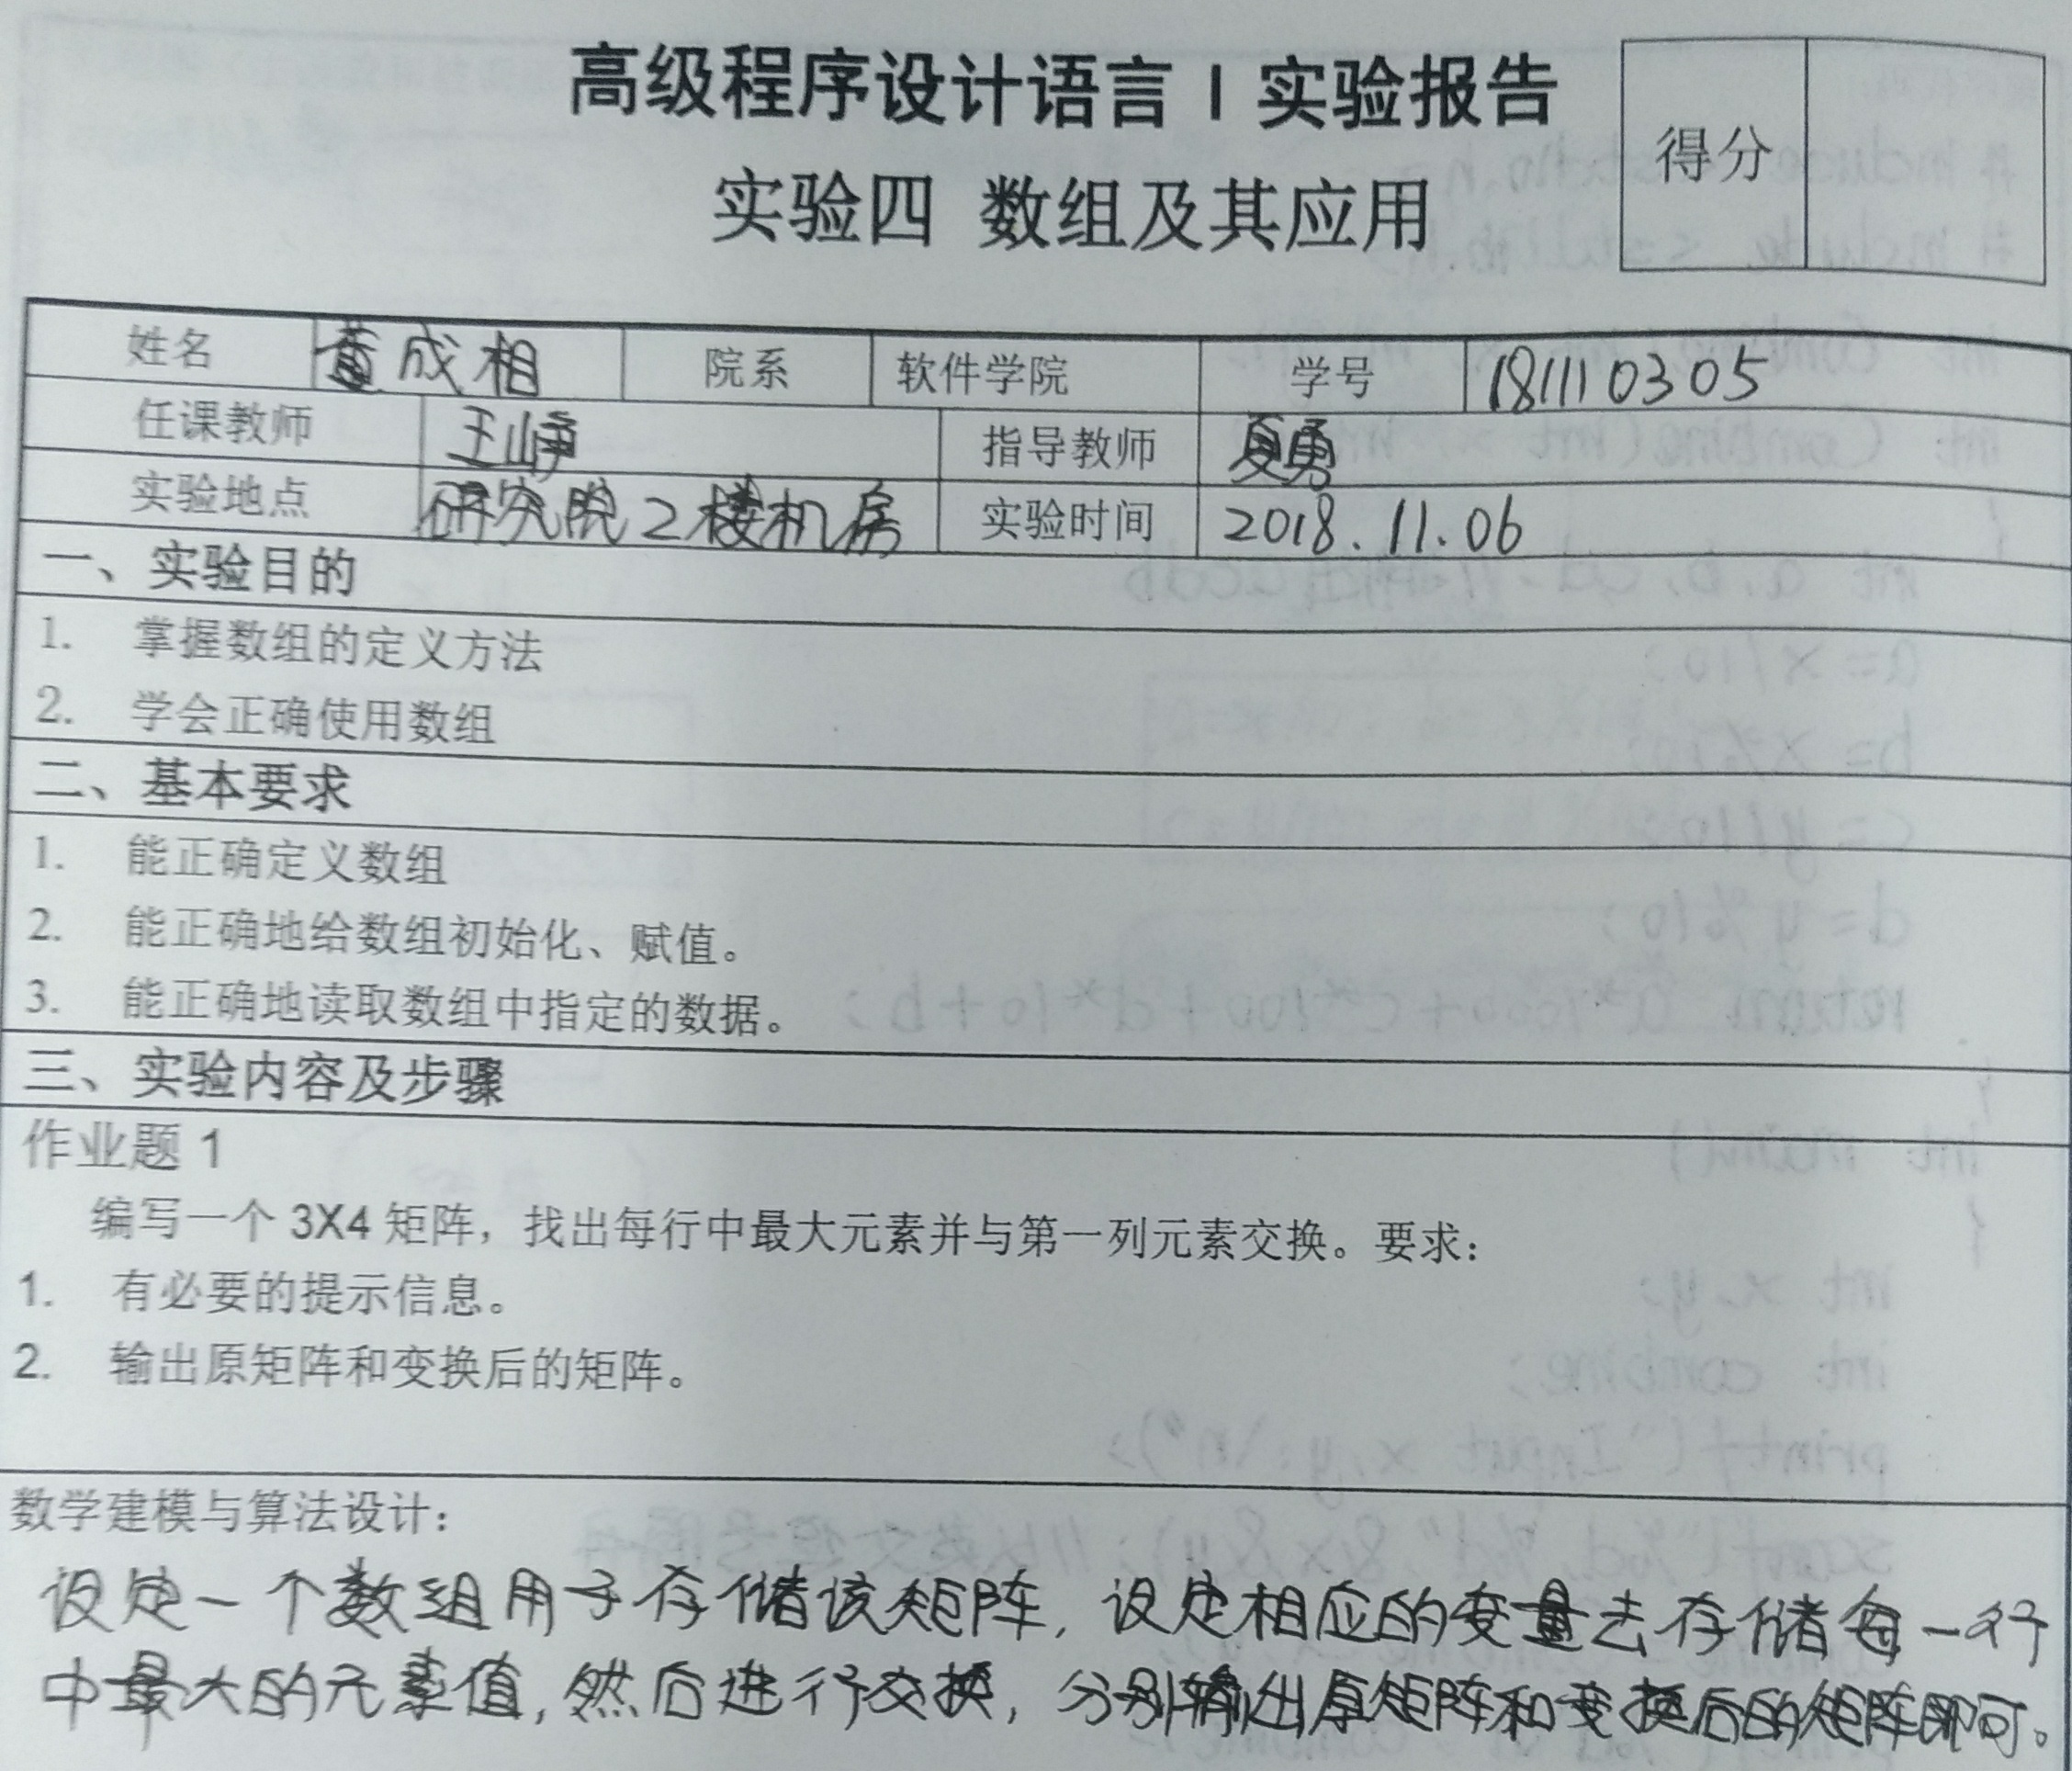 高级程序设计语言 I 实验报告
得分
实验四 数组及其应用
姓名 黄成相 院系 软件学院 学号 1811110305
任课教师 王峥 指导教师 夏勇
实验地点 研究院2楼机房 实验时间 2018.11.06
一、实验目的
1. 掌握数组的定义方法
2. 学会正确使用数组
二、基本要求
1. 能正确定义数组
2. 能正确地给数组初始化、赋值。
3. 能正确地读取数组中指定的数据。
三、实验内容及步骤
作业题 1
编写一个 3X4 矩阵，找出每行中最大元素并与第一列元素交换。要求：
1. 有必要的提示信息。
2. 输出原矩阵和变换后的矩阵。
数学建模与算法设计：
设定一个数组用于存储该矩阵，设定相应的变量去存储每一行
中最大的元素值，然后进行交换，分别输出原矩阵和变换后的矩阵即可。